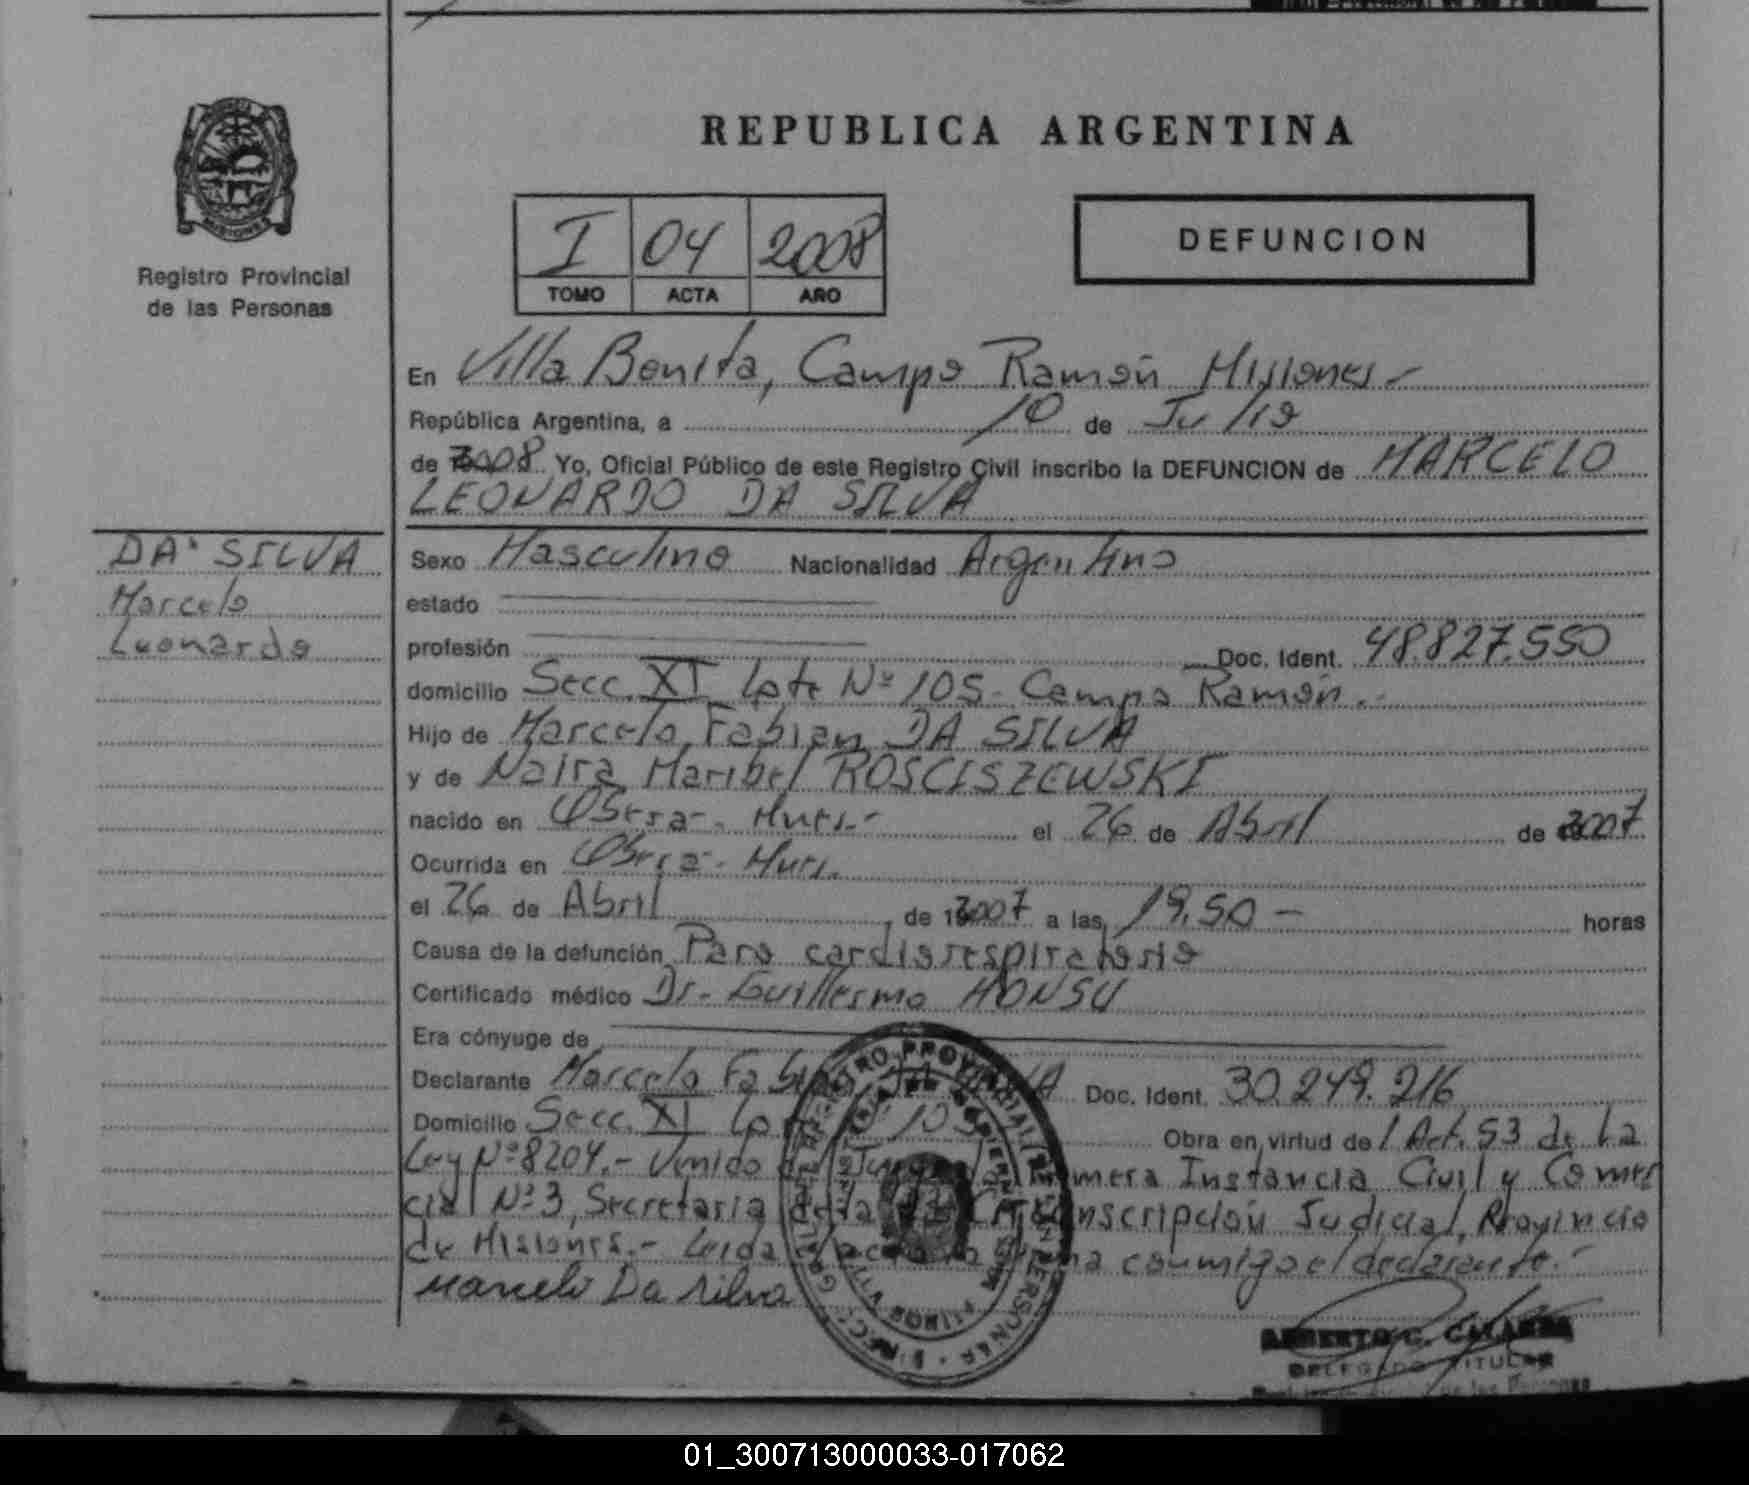 REPUBLICA ARGENTINA
Registro Provincial
de las Personas
I 04 2008
TOMO ACTA AÑO
DEFUNCION
En Villa Bonita, Campo Ramón Misiones -
República Argentina, a 10 de Julio
de 2008 Yo, Oficial Público de este Registro Civil inscribo la DEFUNCION de MARCELO
LEONARDO DA SILVA
DA SILVA
Marcelo
Leonardo
Sexo Masculino Nacionalidad Argentino
estado
profesión Doc. Ident. 48.827.550
domicilio Secc. XI Lote Nº 105 - Campo Ramón.-
Hijo de Marcelo Fabian DA SILVA
y de Naira Maribel ROSCISZEWSKI
nacido en Oberá - Mnes.- el 26 de Abril de 2007
Ocurrida en Oberá - Mnes.
el 26 de Abril de 2007 a las 19,50 - horas
Causa de la defunción Paro cardiorespiratorio
Certificado médico Dr. Guillermo HONSU
Era cónyuge de
Declarante Marcelo Fabian DA SILVA Doc. Ident. 30.249.216
Domicilio Secc. XI Lote 105 Obra en virtud de l Art. 53 de La
Ley Nº 8204.- Venido del Juzgado de Primera Instancia Civil y Comer
cial Nº 3, Secretaria de la Circunscripción Judicial, Provincia
de Misiones.- Leida el acta la firma conmigo el declarante.-
Marcelo Da Silva
REGISTRO PROVINCIAL DE LAS PERSONAS
DELEGADO TITULAR
de las Personas
01_300713000033-017062